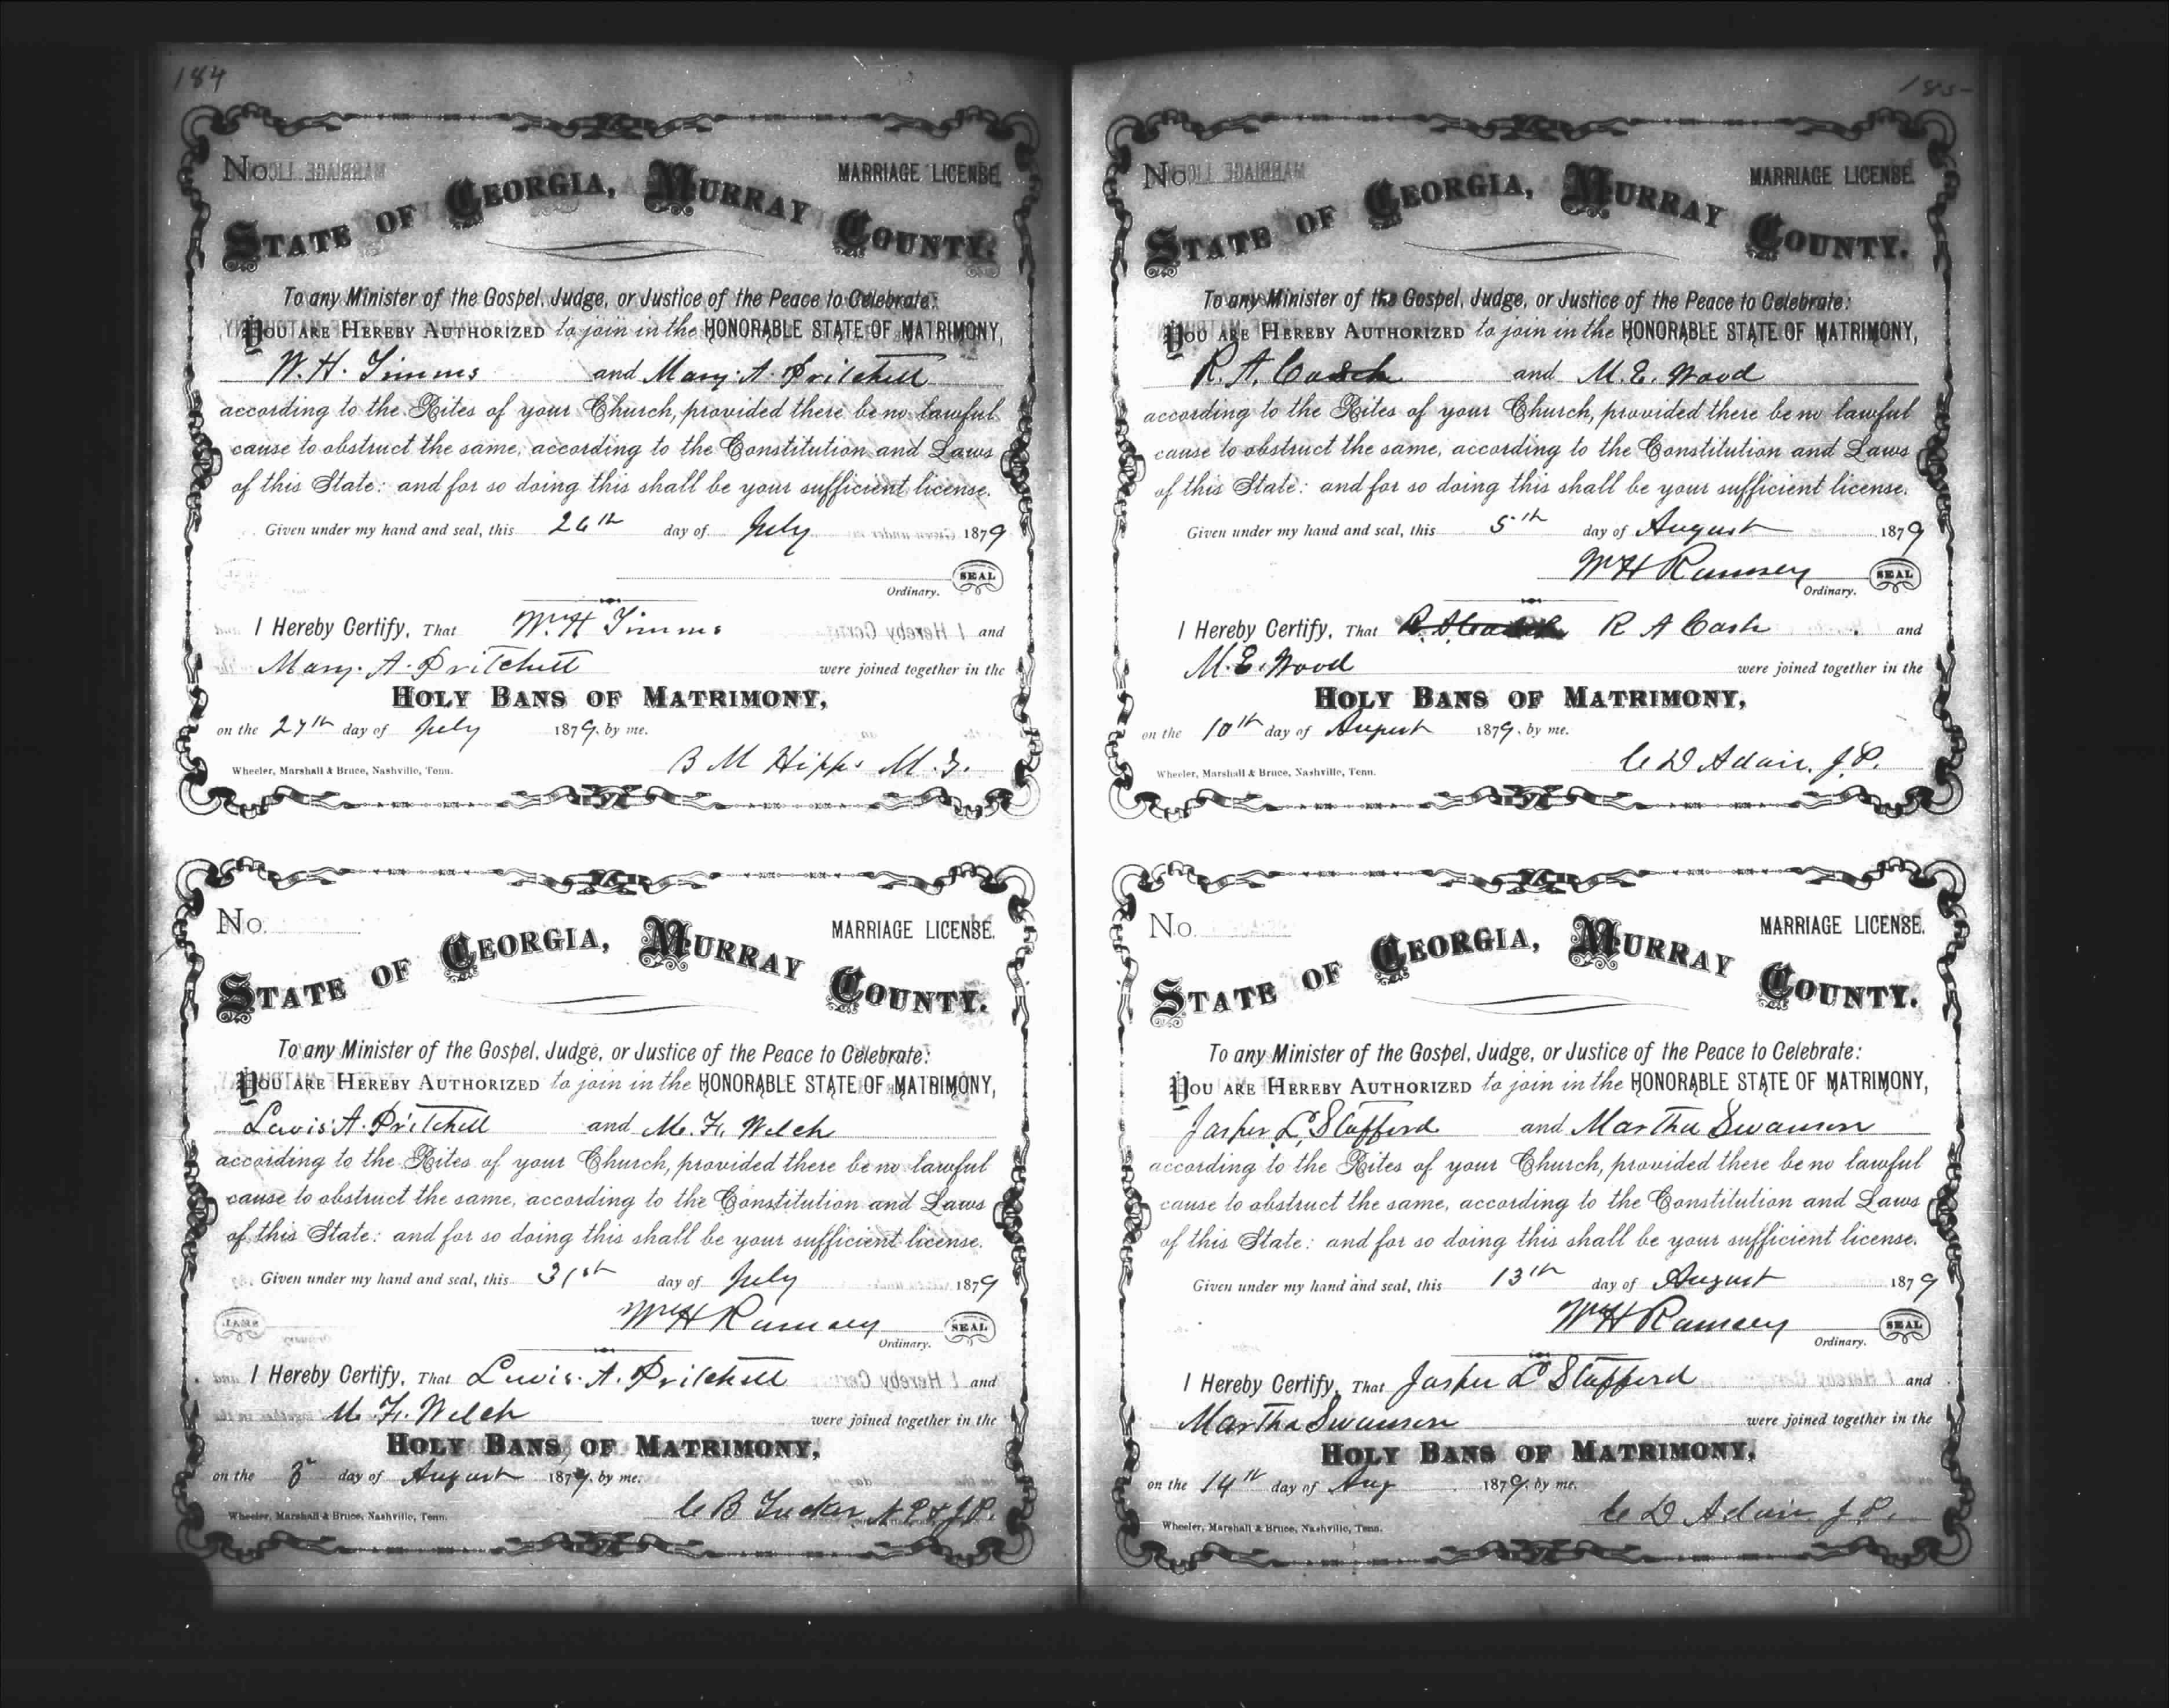 184
No.
MARRIAGE LICENSE.
STATE OF GEORGIA, MURRAY COUNTY.
To any Minister of the Gospel, Judge, or Justice of the Peace to Celebrate:
YOU ARE HEREBY AUTHORIZED to join in the HONORABLE STATE OF MATRIMONY,
W. H. Timms and Mary. A. Pritchett
according to the Rites of your Church, provided there be no lawful
cause to obstruct the same, according to the Constitution and Laws
of this State: and for so doing this shall be your sufficient license.
Given under my hand and seal, this 26th day of July 1879
SEAL
Ordinary.
I Hereby Certify, That Wm H Timms and
Mary. A. Pritchett were joined together in the
HOLY BANS OF MATRIMONY,
on the 27th day of July 1879, by me.
B M Hipps M. G.
Wheeler, Marshall & Bruce, Nashville, Tenn.
No.
MARRIAGE LICENSE.
STATE OF GEORGIA, MURRAY COUNTY.
To any Minister of the Gospel, Judge, or Justice of the Peace to Celebrate:
YOU ARE HEREBY AUTHORIZED to join in the HONORABLE STATE OF MATRIMONY,
Lewis A. Pritchett and M. F. Welch
according to the Rites of your Church, provided there be no lawful
cause to obstruct the same, according to the Constitution and Laws
of this State: and for so doing this shall be your sufficient license.
Given under my hand and seal, this 31st day of July 1879
Wm H Ramsey SEAL
Ordinary.
I Hereby Certify, That Lewis. A. Pritchett and
M. F. Welch were joined together in the
HOLY BANS OF MATRIMONY,
on the 3 day of August 1879, by me.
C B Tucker N P & J P.
Wheeler, Marshall & Bruce, Nashville, Tenn.
185
No.
MARRIAGE LICENSE.
STATE OF GEORGIA, MURRAY COUNTY.
To any Minister of the Gospel, Judge, or Justice of the Peace to Celebrate:
YOU ARE HEREBY AUTHORIZED to join in the HONORABLE STATE OF MATRIMONY,
R. A. Cash and M. E. Wood
according to the Rites of your Church, provided there be no lawful
cause to obstruct the same, according to the Constitution and Laws
of this State: and for so doing this shall be your sufficient license.
Given under my hand and seal, this 5th day of August 1879
Wm H Ramsey SEAL
Ordinary.
I Hereby Certify, That R A Cash and
M. E. Wood were joined together in the
HOLY BANS OF MATRIMONY,
on the 10th day of August 1879, by me.
C D Adair. J. P.
Wheeler, Marshall & Bruce, Nashville, Tenn.
No.
MARRIAGE LICENSE.
STATE OF GEORGIA, MURRAY COUNTY.
To any Minister of the Gospel, Judge, or Justice of the Peace to Celebrate:
YOU ARE HEREBY AUTHORIZED to join in the HONORABLE STATE OF MATRIMONY,
Jasper L. Stafford and Martha Swanson
according to the Rites of your Church, provided there be no lawful
cause to obstruct the same, according to the Constitution and Laws
of this State: and for so doing this shall be your sufficient license.
Given under my hand and seal, this 13th day of August 1879
Wm H Ramsey SEAL
Ordinary.
I Hereby Certify, That Jasper L Stafford and
Martha Swanson were joined together in the
HOLY BANS OF MATRIMONY,
on the 14th day of Aug 1879, by me.
C D Adair J. P.
Wheeler, Marshall & Bruce, Nashville, Tenn.